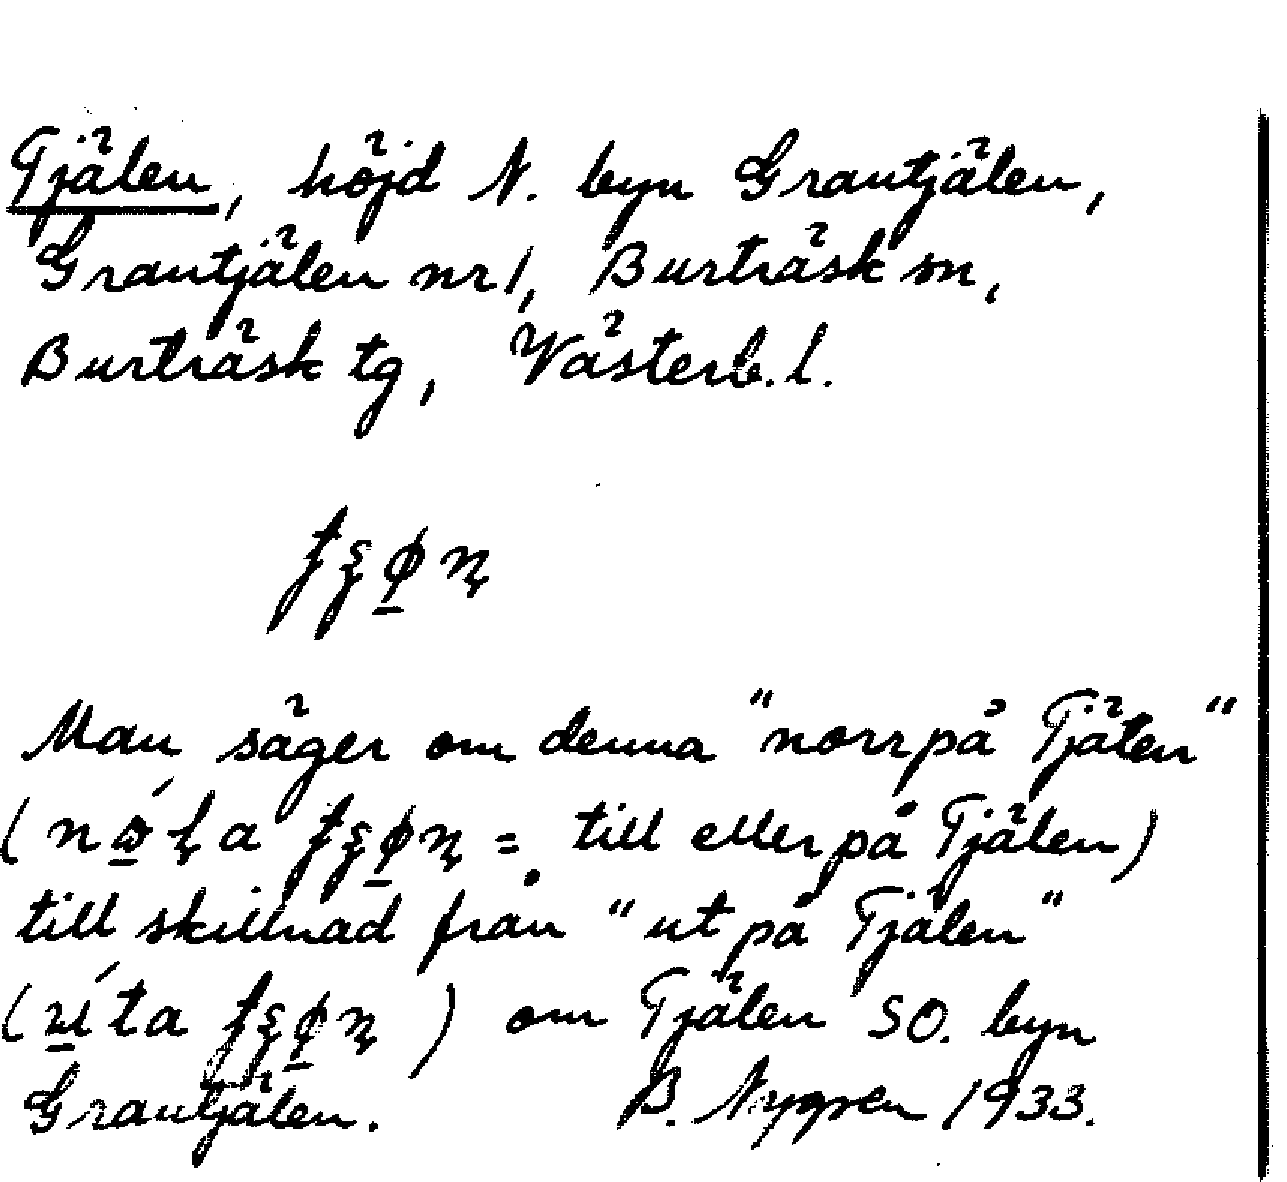 Tjälen, höjd N. byn Grantjälen,
Grantjälen nr 1, Burträsk sn,
Burträsk tg, Västerb. l.
Man säger om denna "norr på Tjälen"
( = till eller på Tjälen)
till skillnad från "ut på Tjälen"
( ) om Tjälen SO. byn
Grantjälen. B. Nygren 1933.